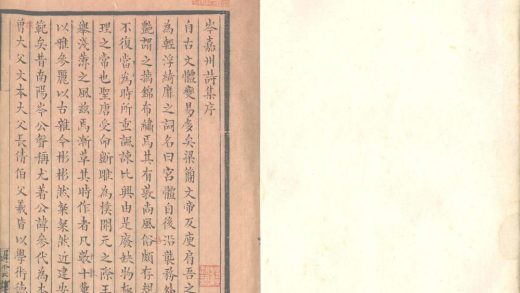 岑嘉州詩集序
自古文體變易多矣梁簡文帝及庾肩吾之
為輕浮綺靡之詞名曰宮體自後沿襲務
艷謂之摛錦布繡焉其有敦尚風俗頗存
不復當為時所重諷諫比興由是廢缺物極
理之常也聖唐受命斲雕為樸開元之際王
舉淺薄之風茲焉漸革其時作者凡數十輩
以雅參麗以古雜今彬彬然粲粲然近建安
範矣昔南陽岑公聲稱尤著公諱參代為本
曾大父文本大父長倩伯父羲皆以學術德